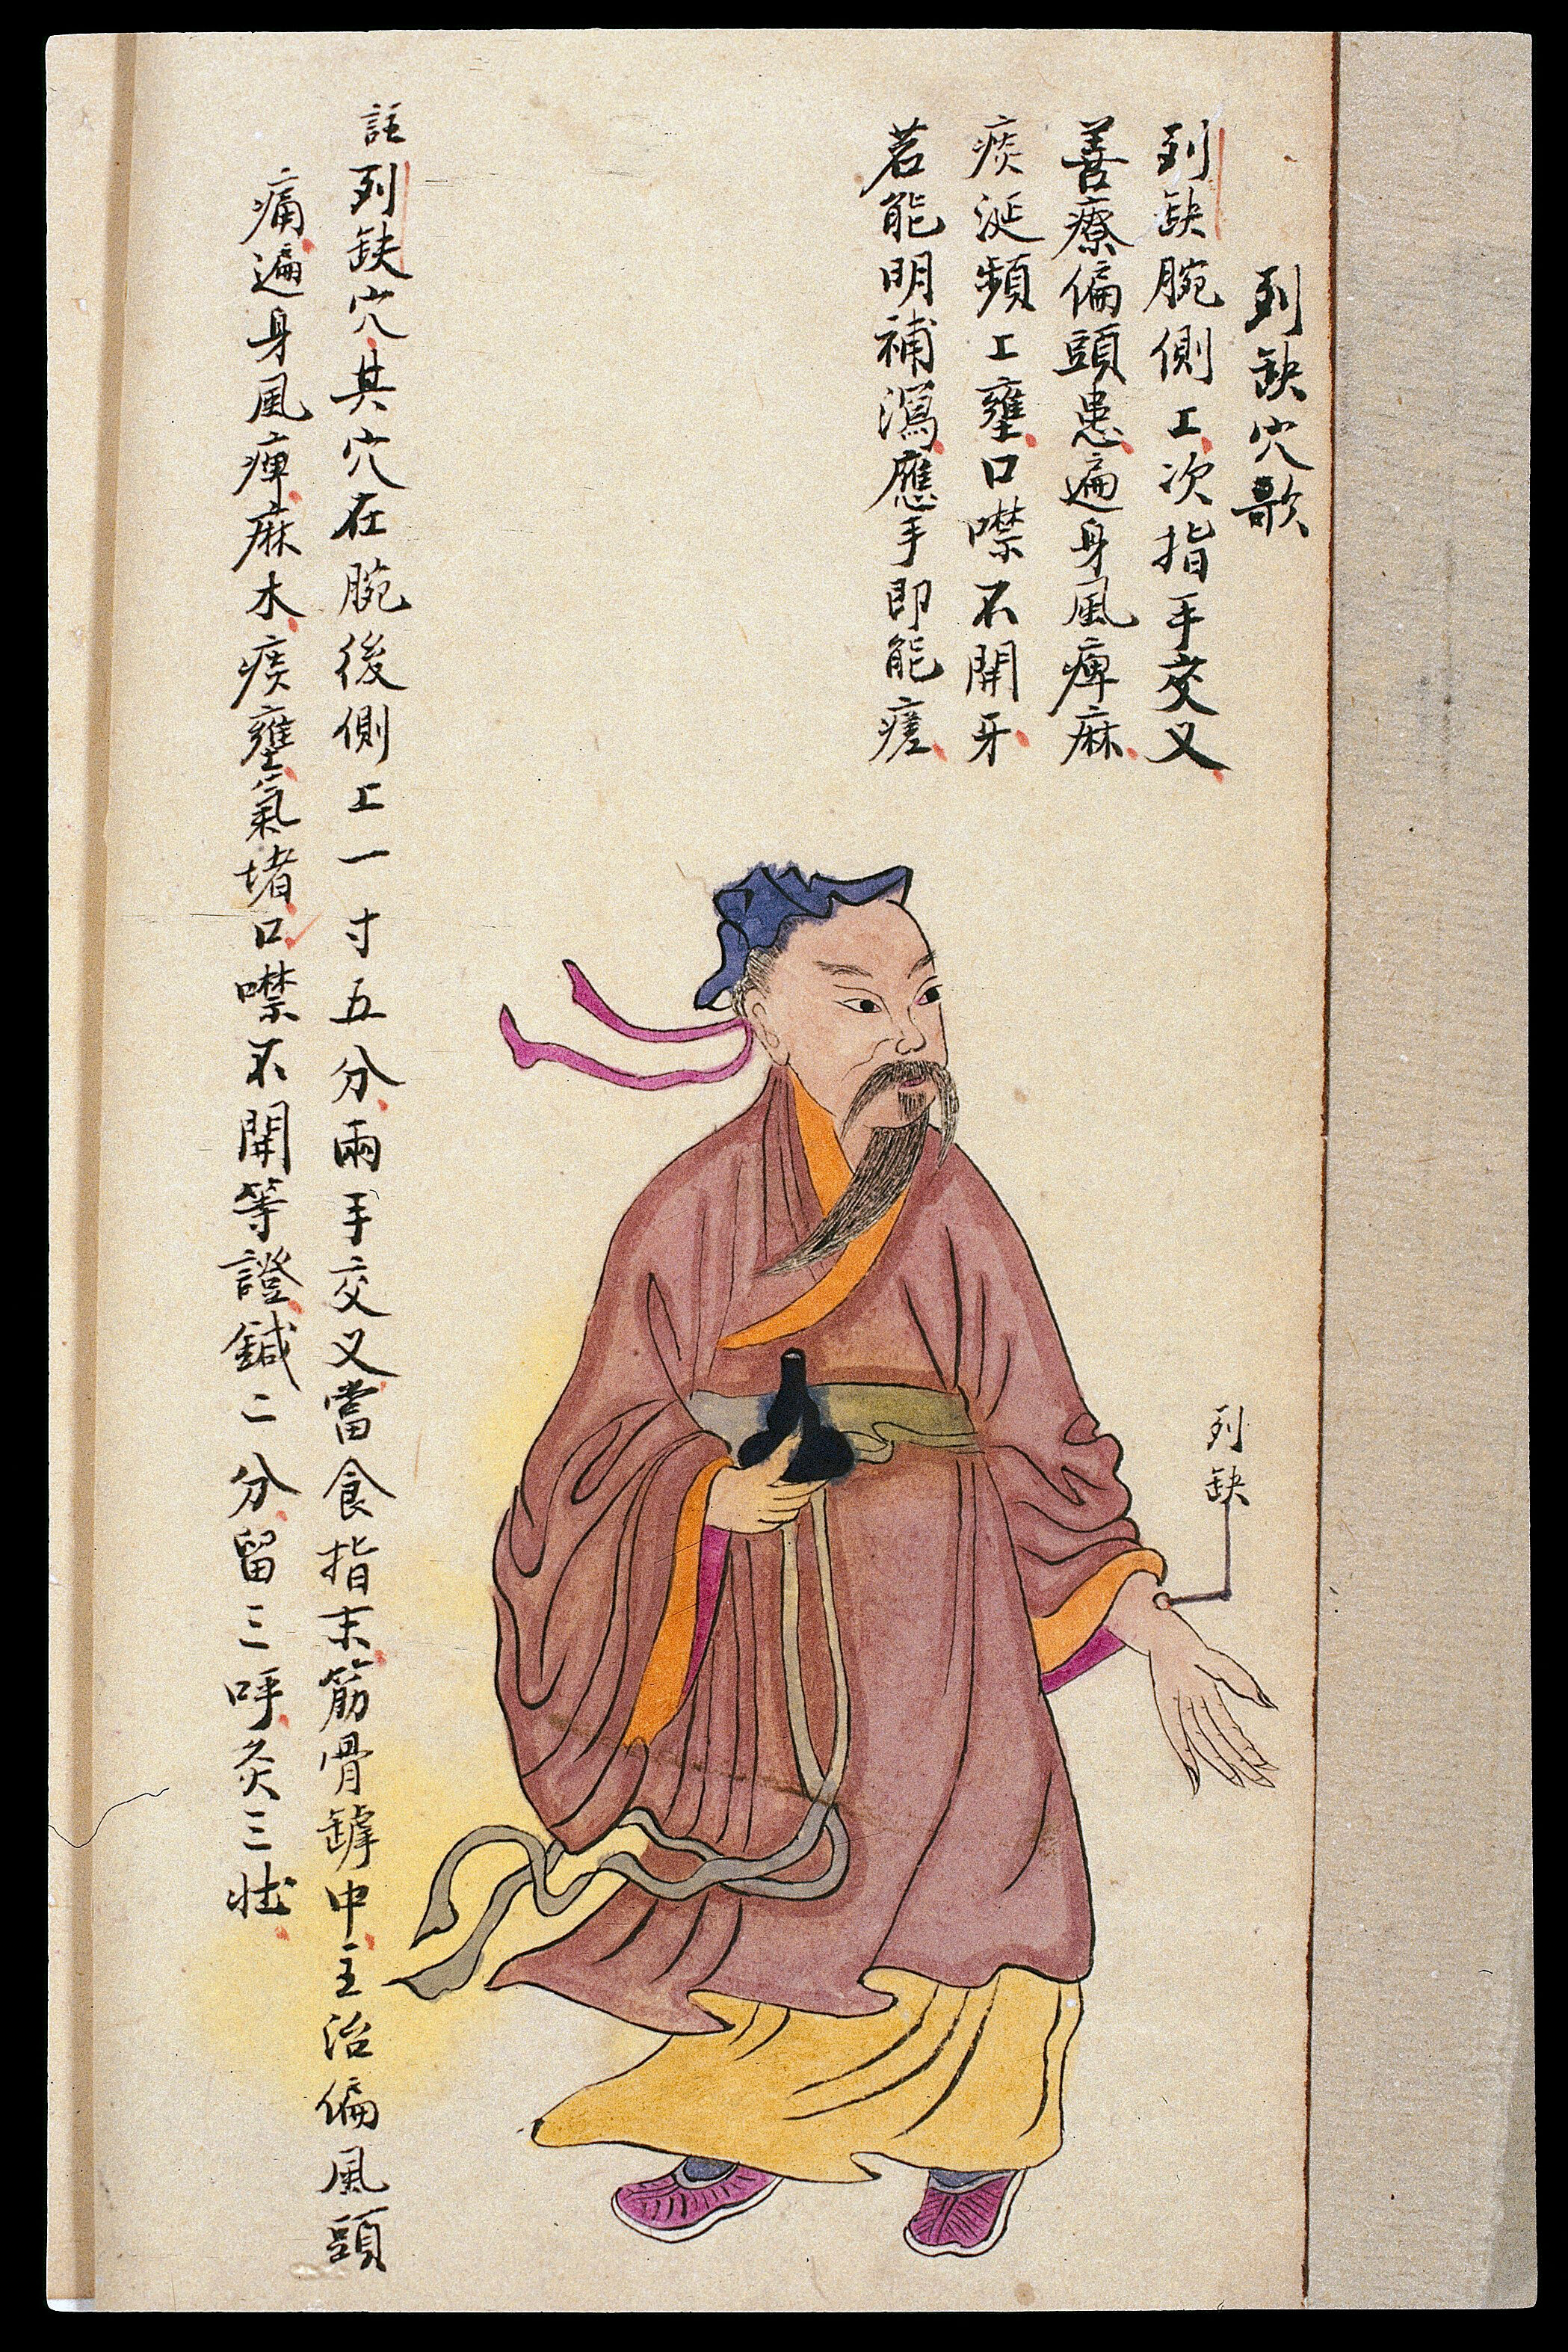 列缺穴歌
列缺腕側上次指手交叉
善療偏頭患遍身風痺麻
痰涎頻上壅口噤不開牙
若能明補瀉應手即能瘥
列缺
註列缺穴其穴在腕後側上一寸五分兩手交叉當食指末筋骨罅中主治偏風頭
痛遍身風痺麻木痰壅氣堵口噤不開等證鍼二分留三呼灸三壯